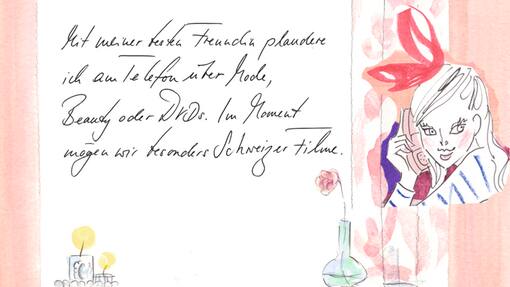 Mit meiner besten Freundin plaudere
ich am Telefon über Mode,
Beauty oder DVDs. Im Moment
mögen wir besonders Schweizer Filme.